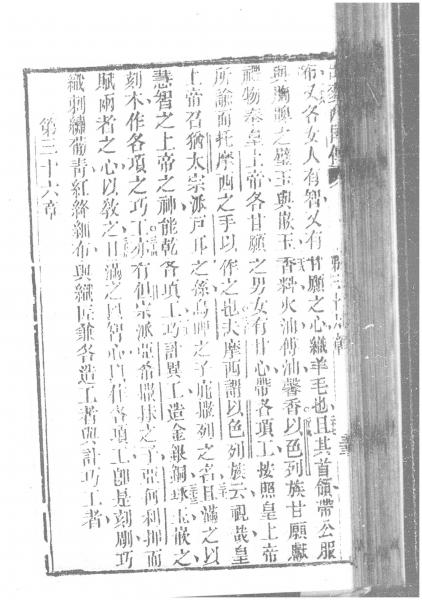 布又各女人有智又有甘願之心織羊毛也且其首領帶公服
與胸牌之璧玉與嵌玉香料火油傅油馨香以色列族甘願獻
禮物奉皇上帝各甘願之男女有甘心帶各項工按照皇上帝
所諭而托摩西之手以作之也夫摩西謂以色列族云視哉皇
上帝召猶大宗派戶耳之孫烏唎之子庇撒列之名且滿之以
慧智之上帝之神能乾各項工巧計異工造金銀銅琢玉嵌之
刻木作各項之巧工亦有但宗派亞希撒抹之子亞何利押而
賦兩者之心以教之日滿之以智心以作各項工即是刻剛巧
織刺繡葡青紅絳細布與織匠兼各造工者與計巧工者
第三十六章